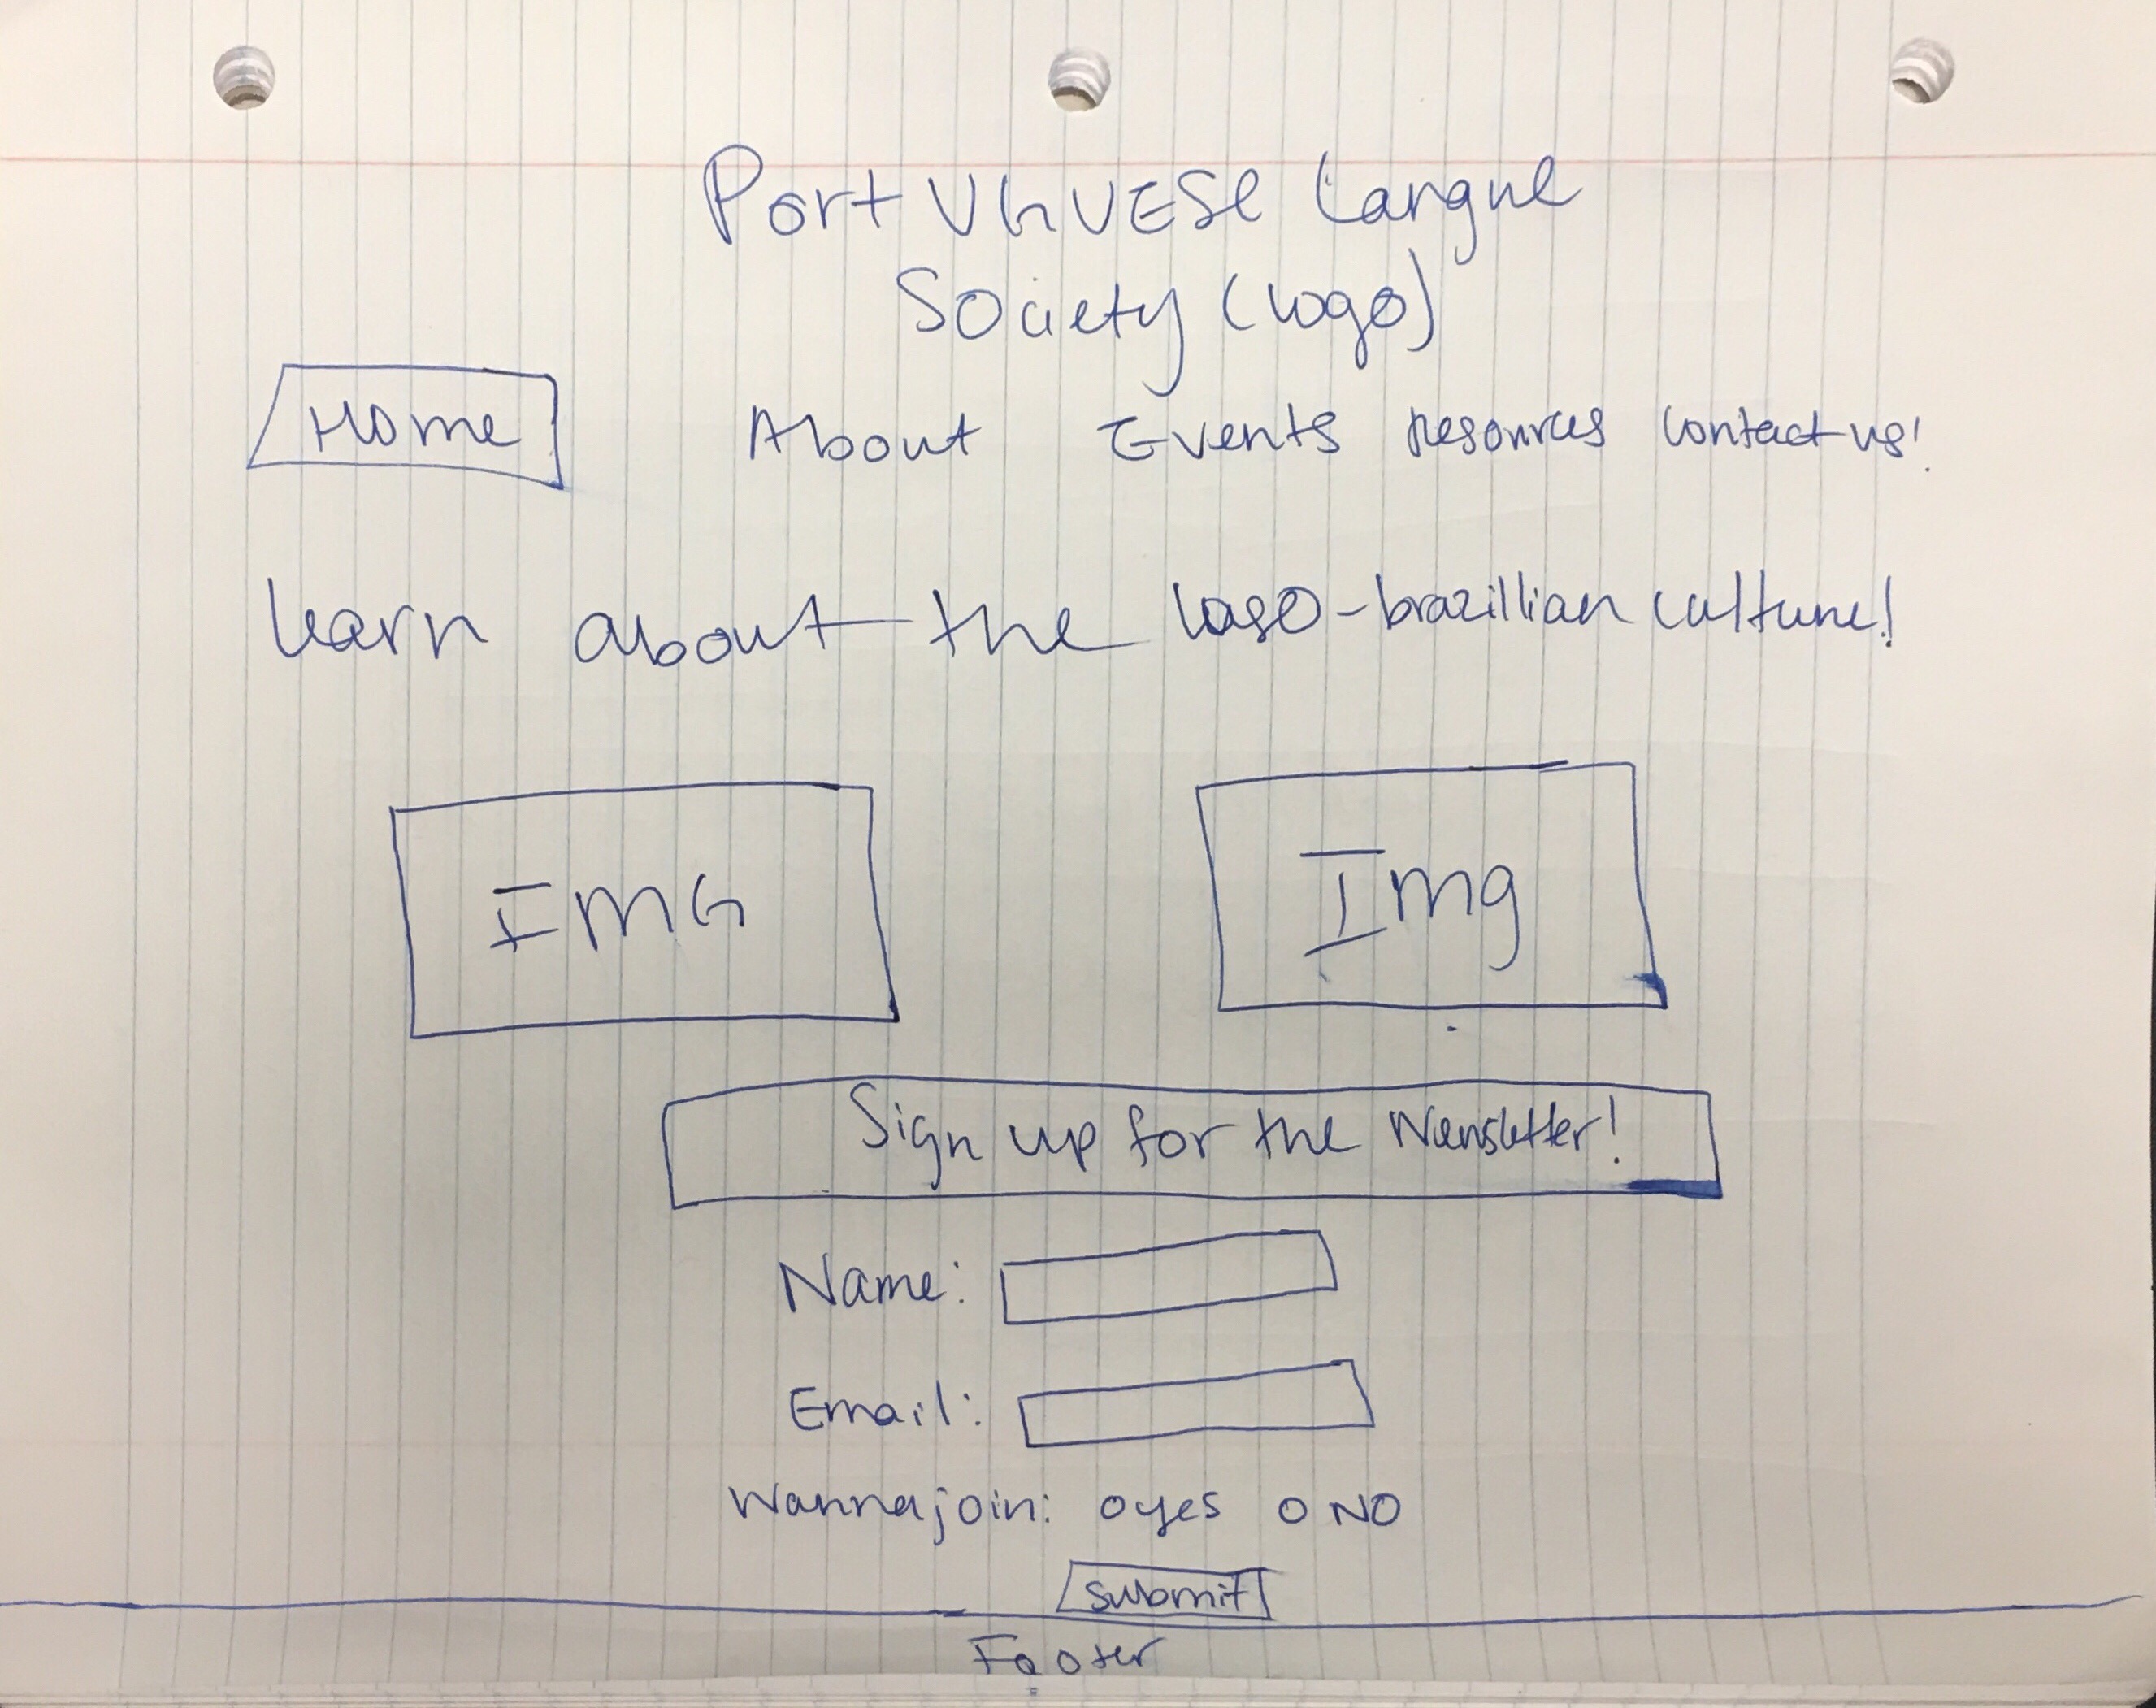 Portuguese Langue
Society (logo)
Home About Events Resources contact us!
learn about the luso-brazillian culture!
IMG Img
Sign up for the Newsletter!
Name:
Email:
Wanna join: o yes o NO
submit
Footer